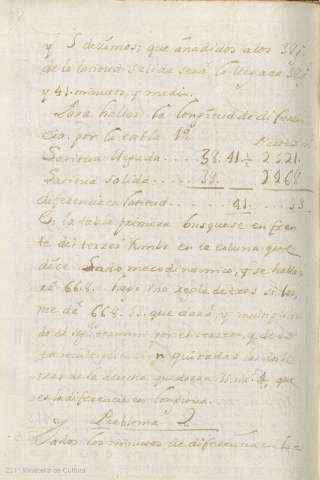 y 5 dezimos; que añadidos alos 38 g.
de la latitud salida sera la llegada 38 g
y 41. minutos, y medio.
Para hallar la longitud de diferen
cia por la tabla 1ª
Partes m
Latitud llegada .... 38. 41.½ 2521.
Latitud salida .... 38. 2468
diferencia en latitud ..... 41. .... 53
En la tabla primera busquese en fren
te del terzer Rumbo en la coluna que
dize Lado mecodinamico, y se halla
rá 668. hago una regla de tres si
me dá 668. 53. que dará, y multiplican
do el seg.º termino por el terzero, y de
la multiplicacion quitadas las
de la derecha quedaran que
es la diferencia en longitud.
y Problema 2º
Dados los minutos de diferencia en lo=
221* Ministerio de Cultura